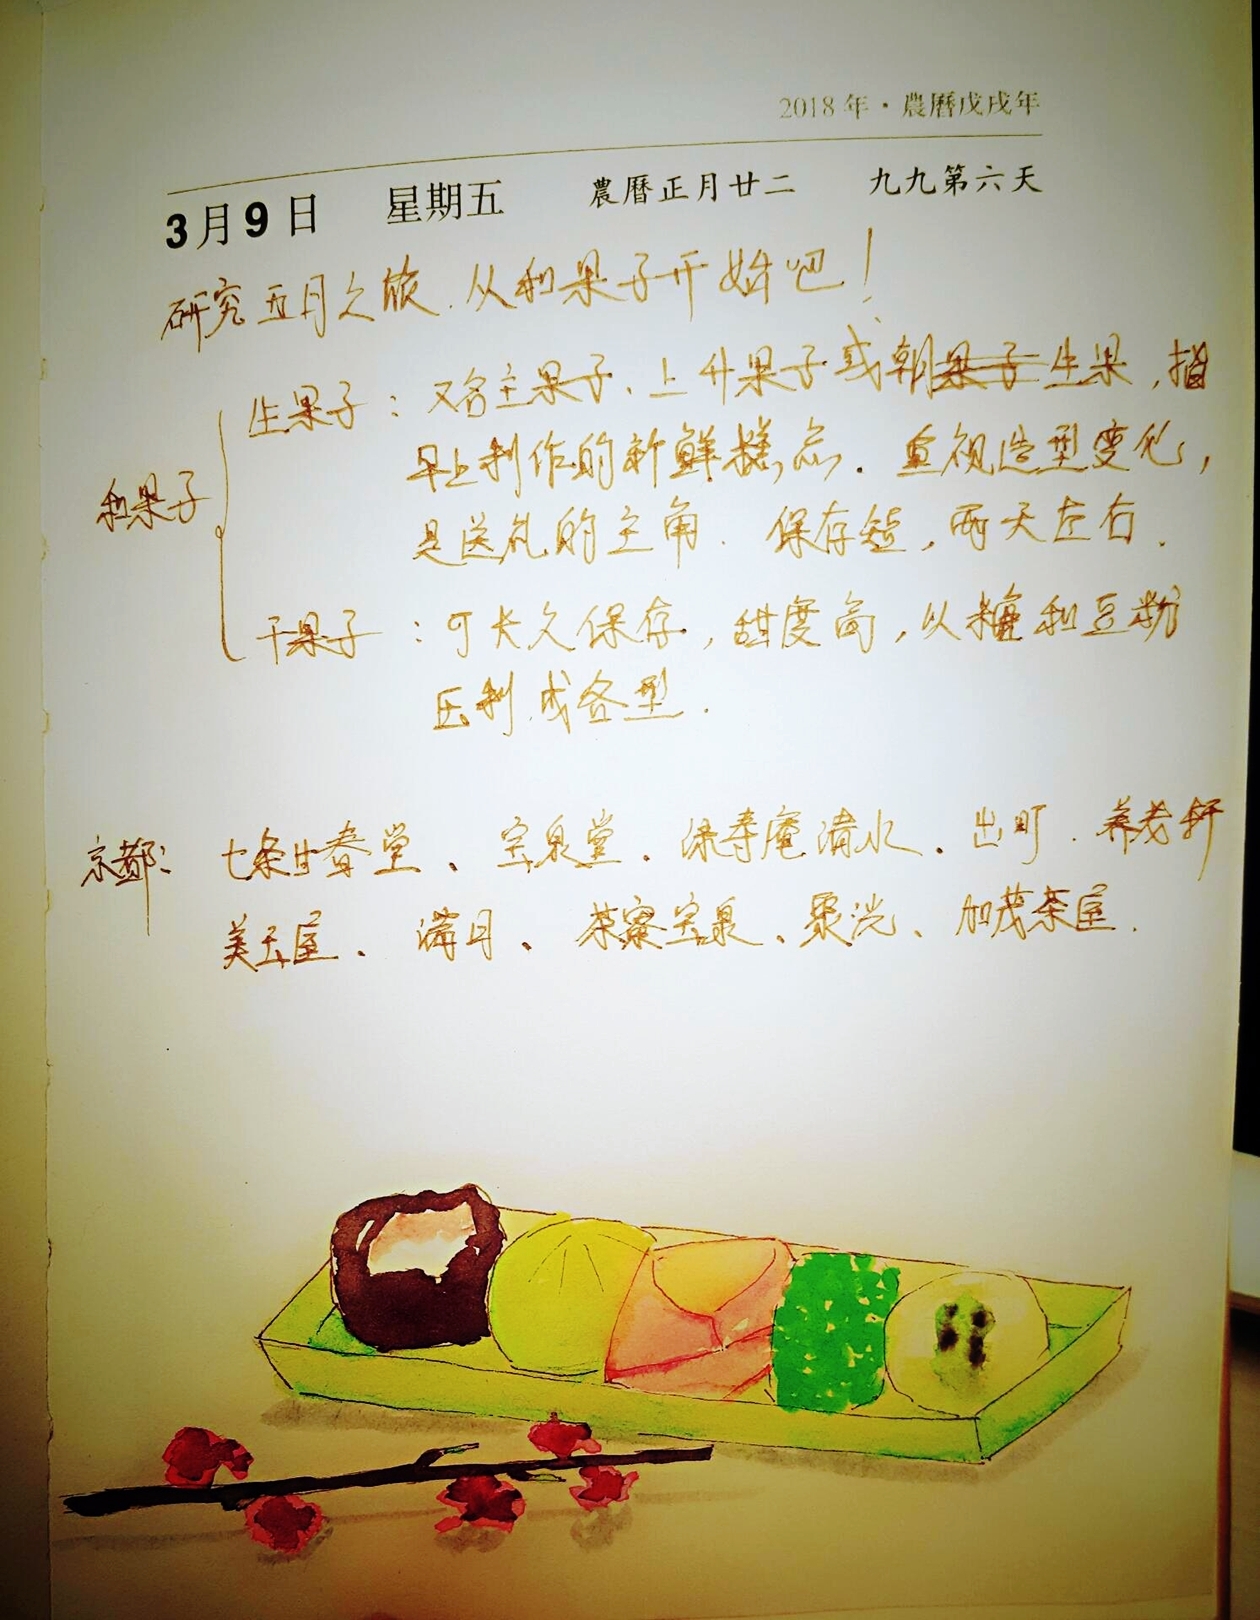 2018年·農曆戊戌年
3月9日 星期五 農曆正月廿二 九九第六天
研究五月之旅.从和果子开始吧!
生果子:又名主果子、上升果子或朝果子生果,指
早上制作的新鲜糕点.重视造型变化,
和果子
是送礼的主角.保存短,两天左右.
干果子:可长久保存,甜度高,以糖和豆粉
压制成各型.
京都:七条甘春堂、宝泉堂.绿寿庵清水.出町.养老轩
美玉屋.满月、茶寮宝泉、聚洸、加茂茶屋.